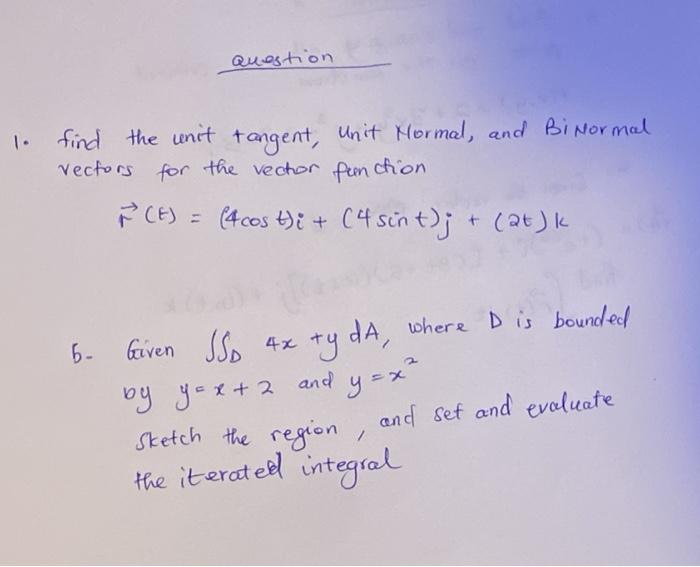 question
1. find the unit tangent, Unit Normal, and BiNormal
vectors for the vector function
r⃗(t) = (4cos t)i + (4 sin t)j + (2t)k
b- Given ∬_D 4x + y dA, where D is bounded
by y = x + 2 and y = x²
sketch the region, and set and evaluate
the iterated integral